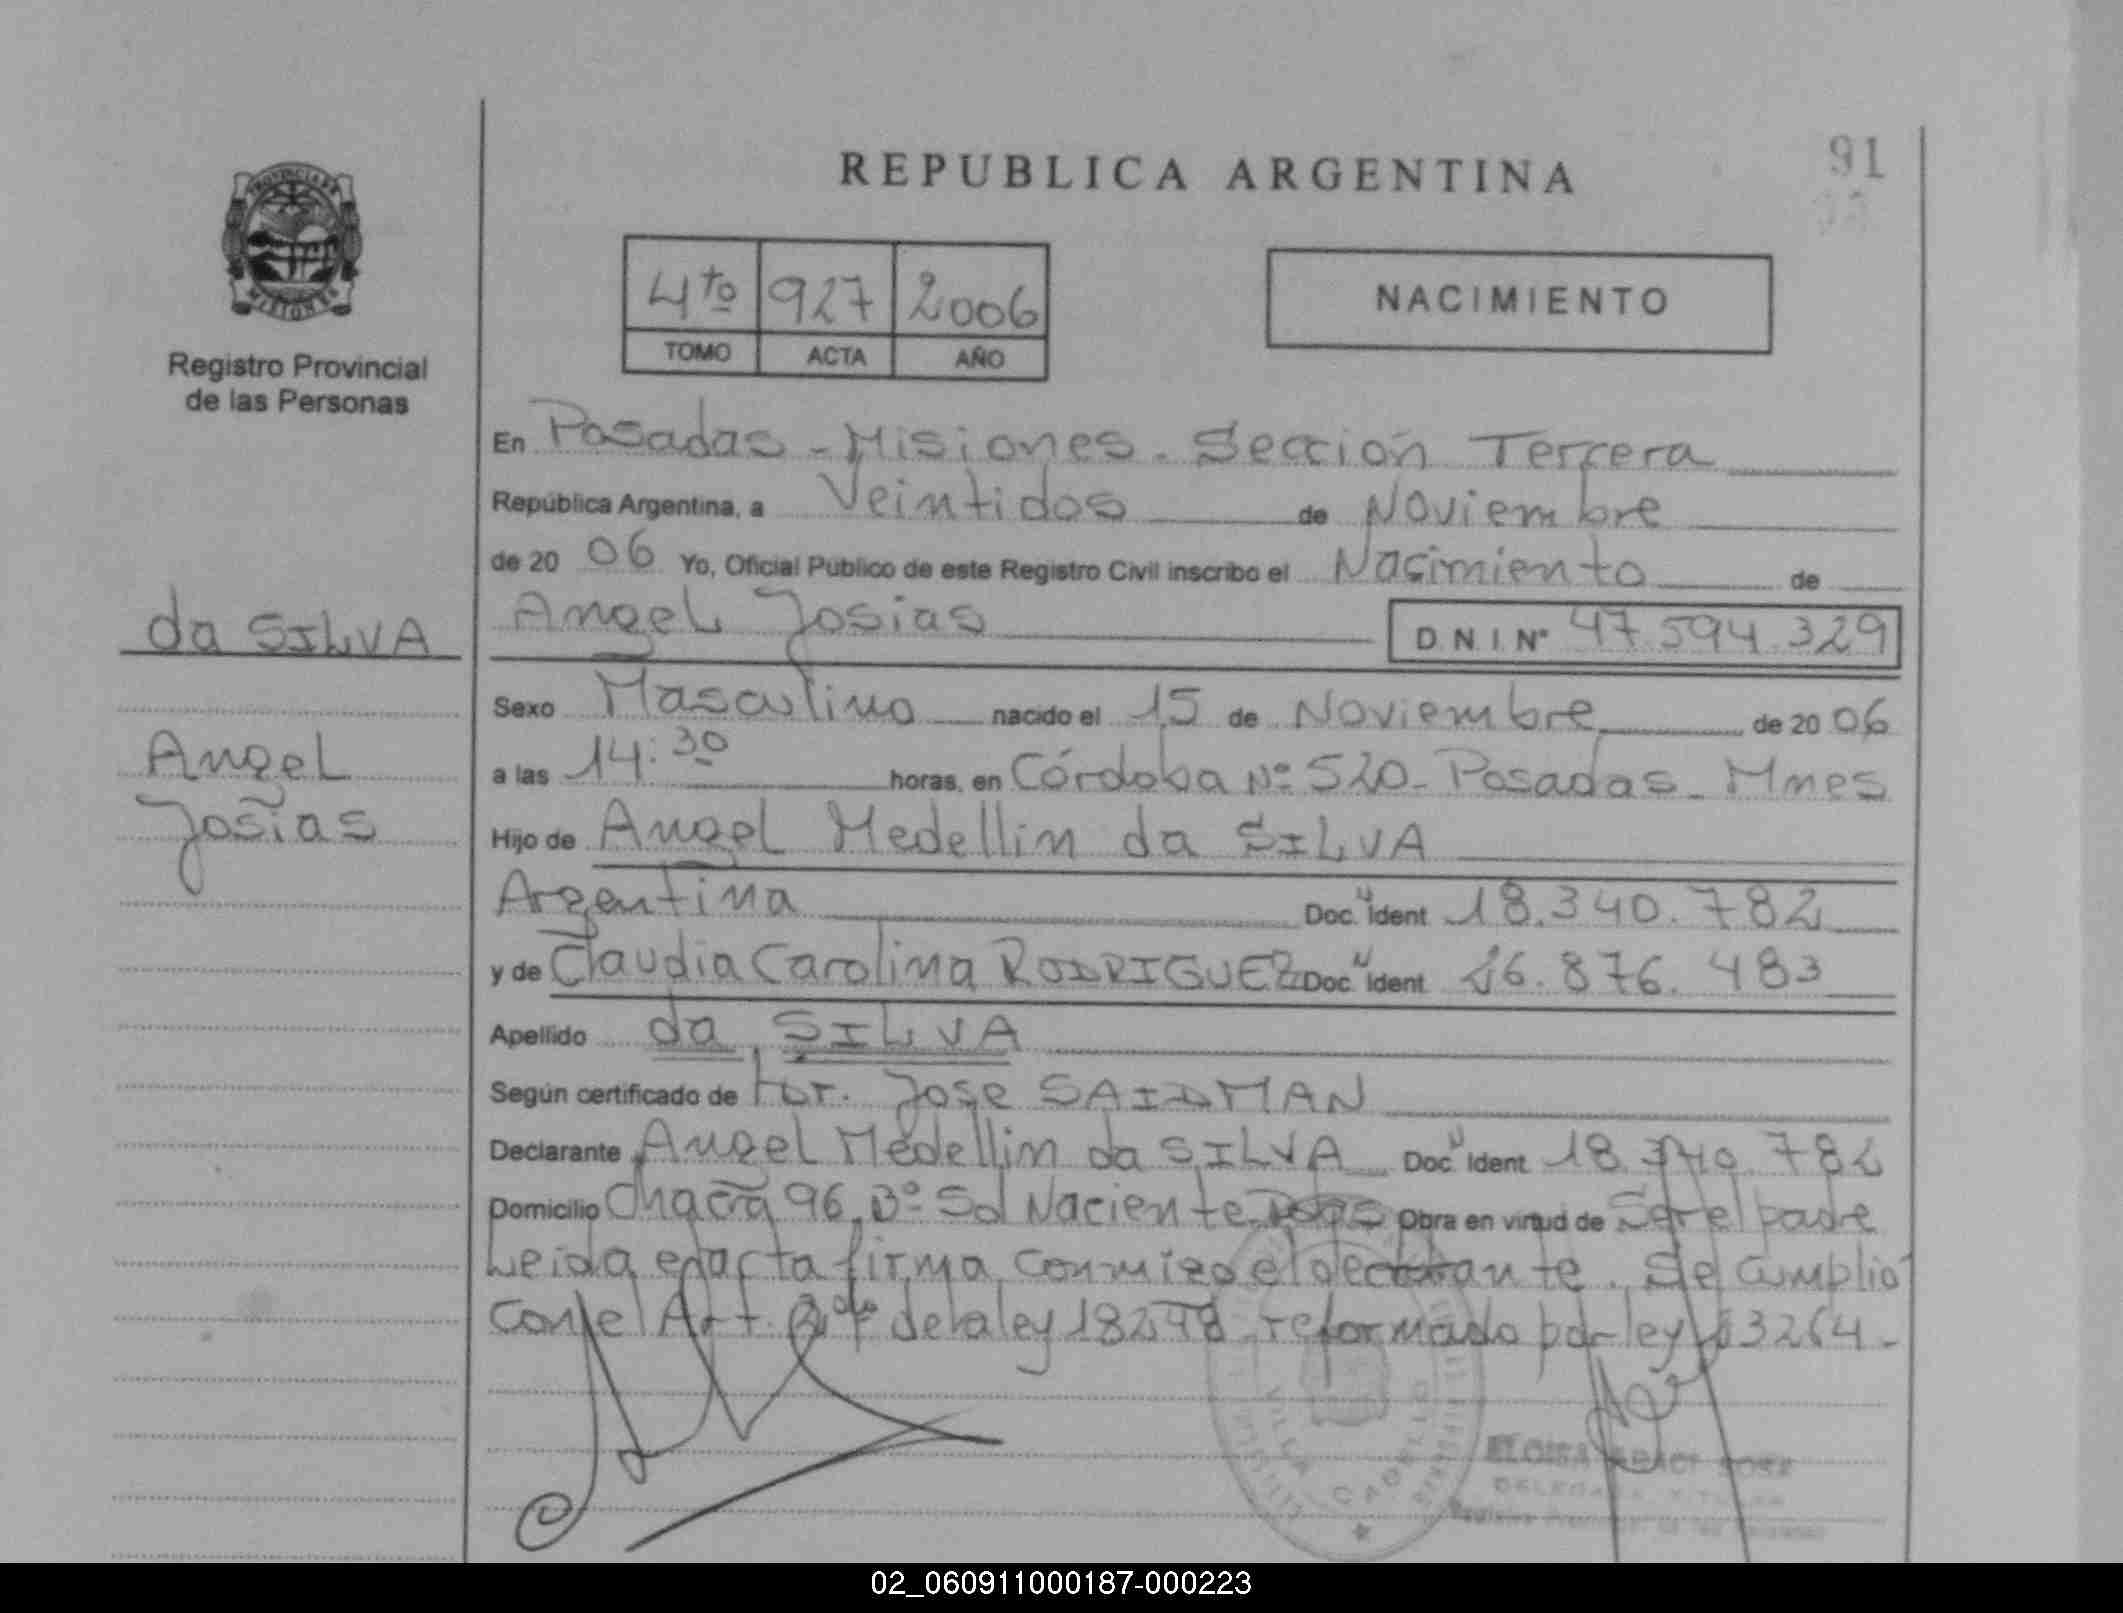 REPUBLICA ARGENTINA
91
PROVINCIA DE
MISIONES
Registro Provincial
de las Personas
4to 927 2006
TOMO ACTA AÑO
NACIMIENTO
En Posadas - Misiones. Sección Tercera
República Argentina, a Veintidos de Noviembre
de 20 06 Yo, Oficial Público de este Registro Civil inscribo el Nacimiento de
da SILVA
Angel Josias D.N.I. N° 47.594.329
Sexo Masculino nacido el 15 de Noviembre de 20 06
Angel
Josias
a las 14:30 horas, en Córdoba Nº 520 - Posadas - Mnes
Hijo de Angel Medellin da SILVA
Argentina Doc. Ident 18.340.782
y de Claudia Carolina RODRIGUEZ Doc. Ident 26.876.483
Apellido da SILVA
Según certificado de Dr. Jose SAIDMAN
Declarante Angel Medellin da SILVA Doc. Ident 18.340.782
Domicilio Chacra 96, Bº Sol Naciente Obra en virtud de Ser el padre
Leida el acta firma conmigo el declarante. Se cumplió
con el Art. de la ley 18248 reformado por ley 23264 -
VILLA CABELLO
SOSA
02_060911000187-000223